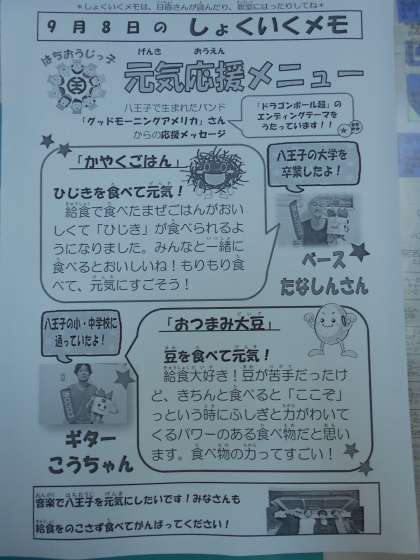 ＊しょくいくメモは、日直さんが読んだり、教室にはったりしてね＊
9月8日の しょくいくメモ
はちおうじっ子
元気応援メニュー
八王子で生まれたバンド
「グッドモーニングアメリカ」さん
からの応援メッセージ
「ドラゴンボール超」の
エンディングテーマを
うたっています！！
「かやくごはん」
ひじきを食べて元気！
給食で食べたまぜごはんがおい
しくて「ひじき」が食べられるよ
うになりました。みんなと一緒に
食べるとおいしいね！もりもり食
べて、元気にすごそう！
八王子の大学を
卒業したよ！
ベース
たなしんさん
八王子の小・中学校に
通っていたよ！
ギター
こうちゃん
「おつまみ大豆」
豆を食べて元気！
給食大好き！豆が苦手だったけ
ど、きちんと食べると「ここぞ」
っという時にふしぎと力がわいて
くるパワーのある食べ物だと思い
ます。食べ物の力ってすごい！
音楽で八王子を元気にしたいです！みなさんも
給食をのこさず食べてがんばってください！